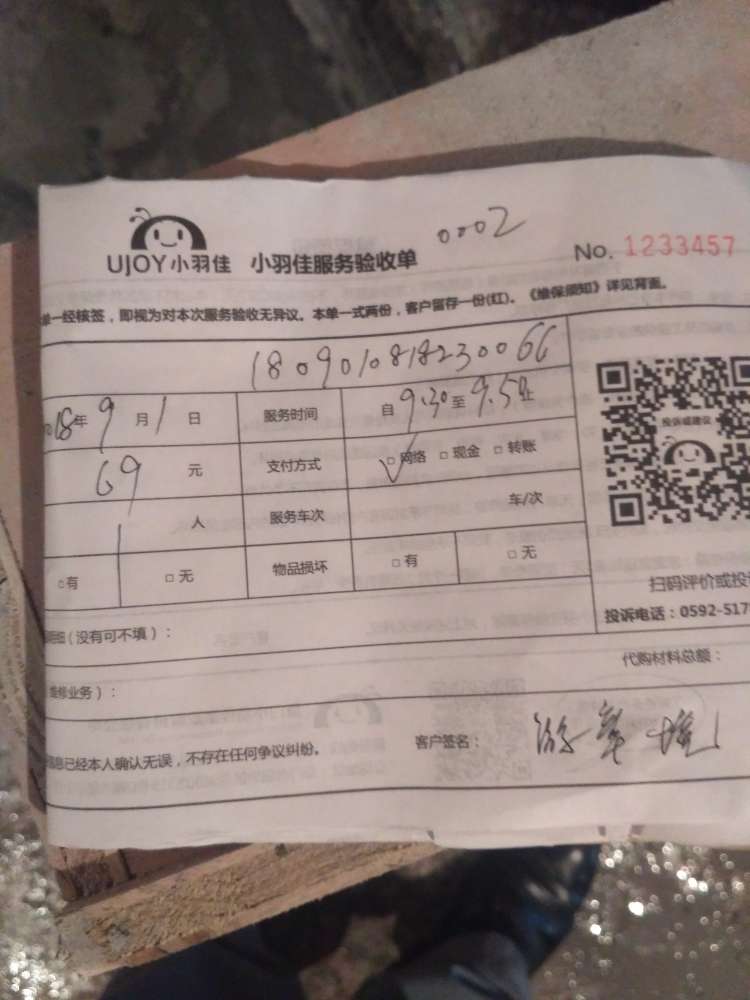 0002
UJOY小羽佳 小羽佳服务验收单 No. 1233457
单一经核签，即视为对本次服务验收无异议。本单一式两份，客户留存一份(红)。《维保须知》详见背面。
1809010818230066
2018年9月1日 服务时间 自9.30至9.50止
69元 支付方式 ✓□网络 □现金 □转账
1人 服务车次 车/次
□有 □无 物品损坏 □有 □无
投诉或建议
扫码评价或投
投诉电话：0592-517
明细（没有可不填）：
代购材料总额：
维修业务）：
信息已经本人确认无误，不存在任何争议纠纷。 客户签名：